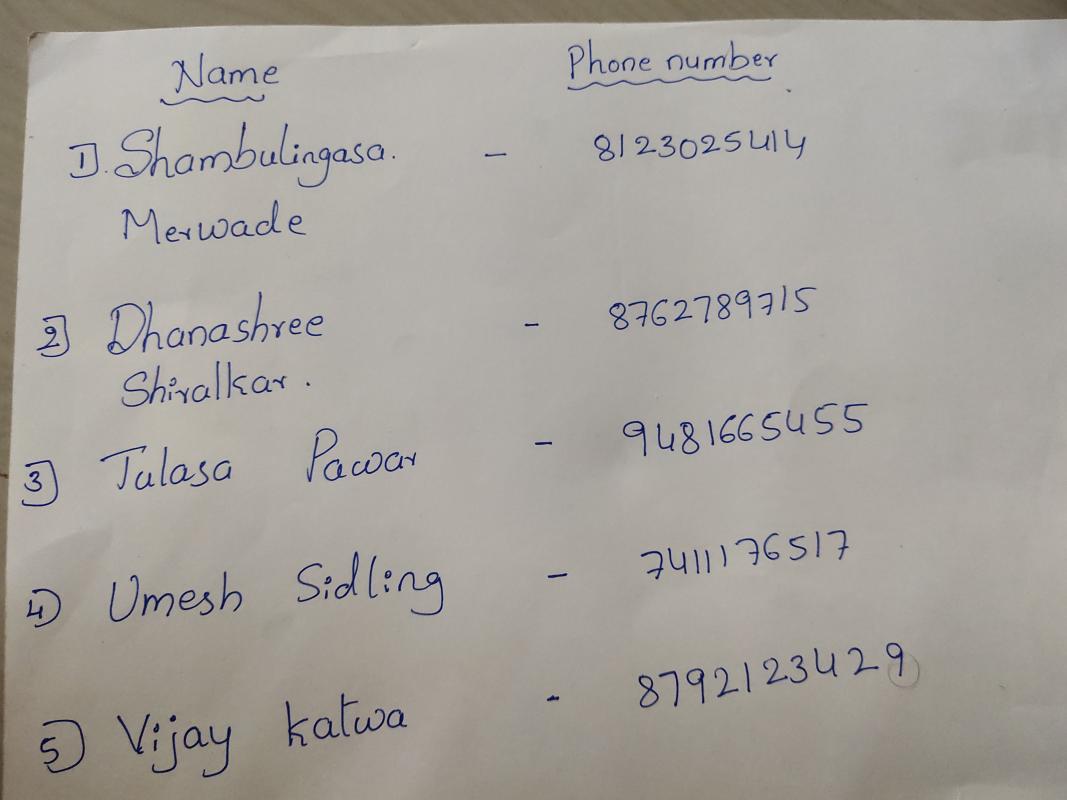 Name Phone number
1). Shambulingasa. - 8123025414
Merwade
2) Dhanashree - 8762789715
Shiralkar.
3) Tulasa Pawar - 9481665455
4) Umesh Sidling - 7411176517
5) Vijay katwa - 8792123429